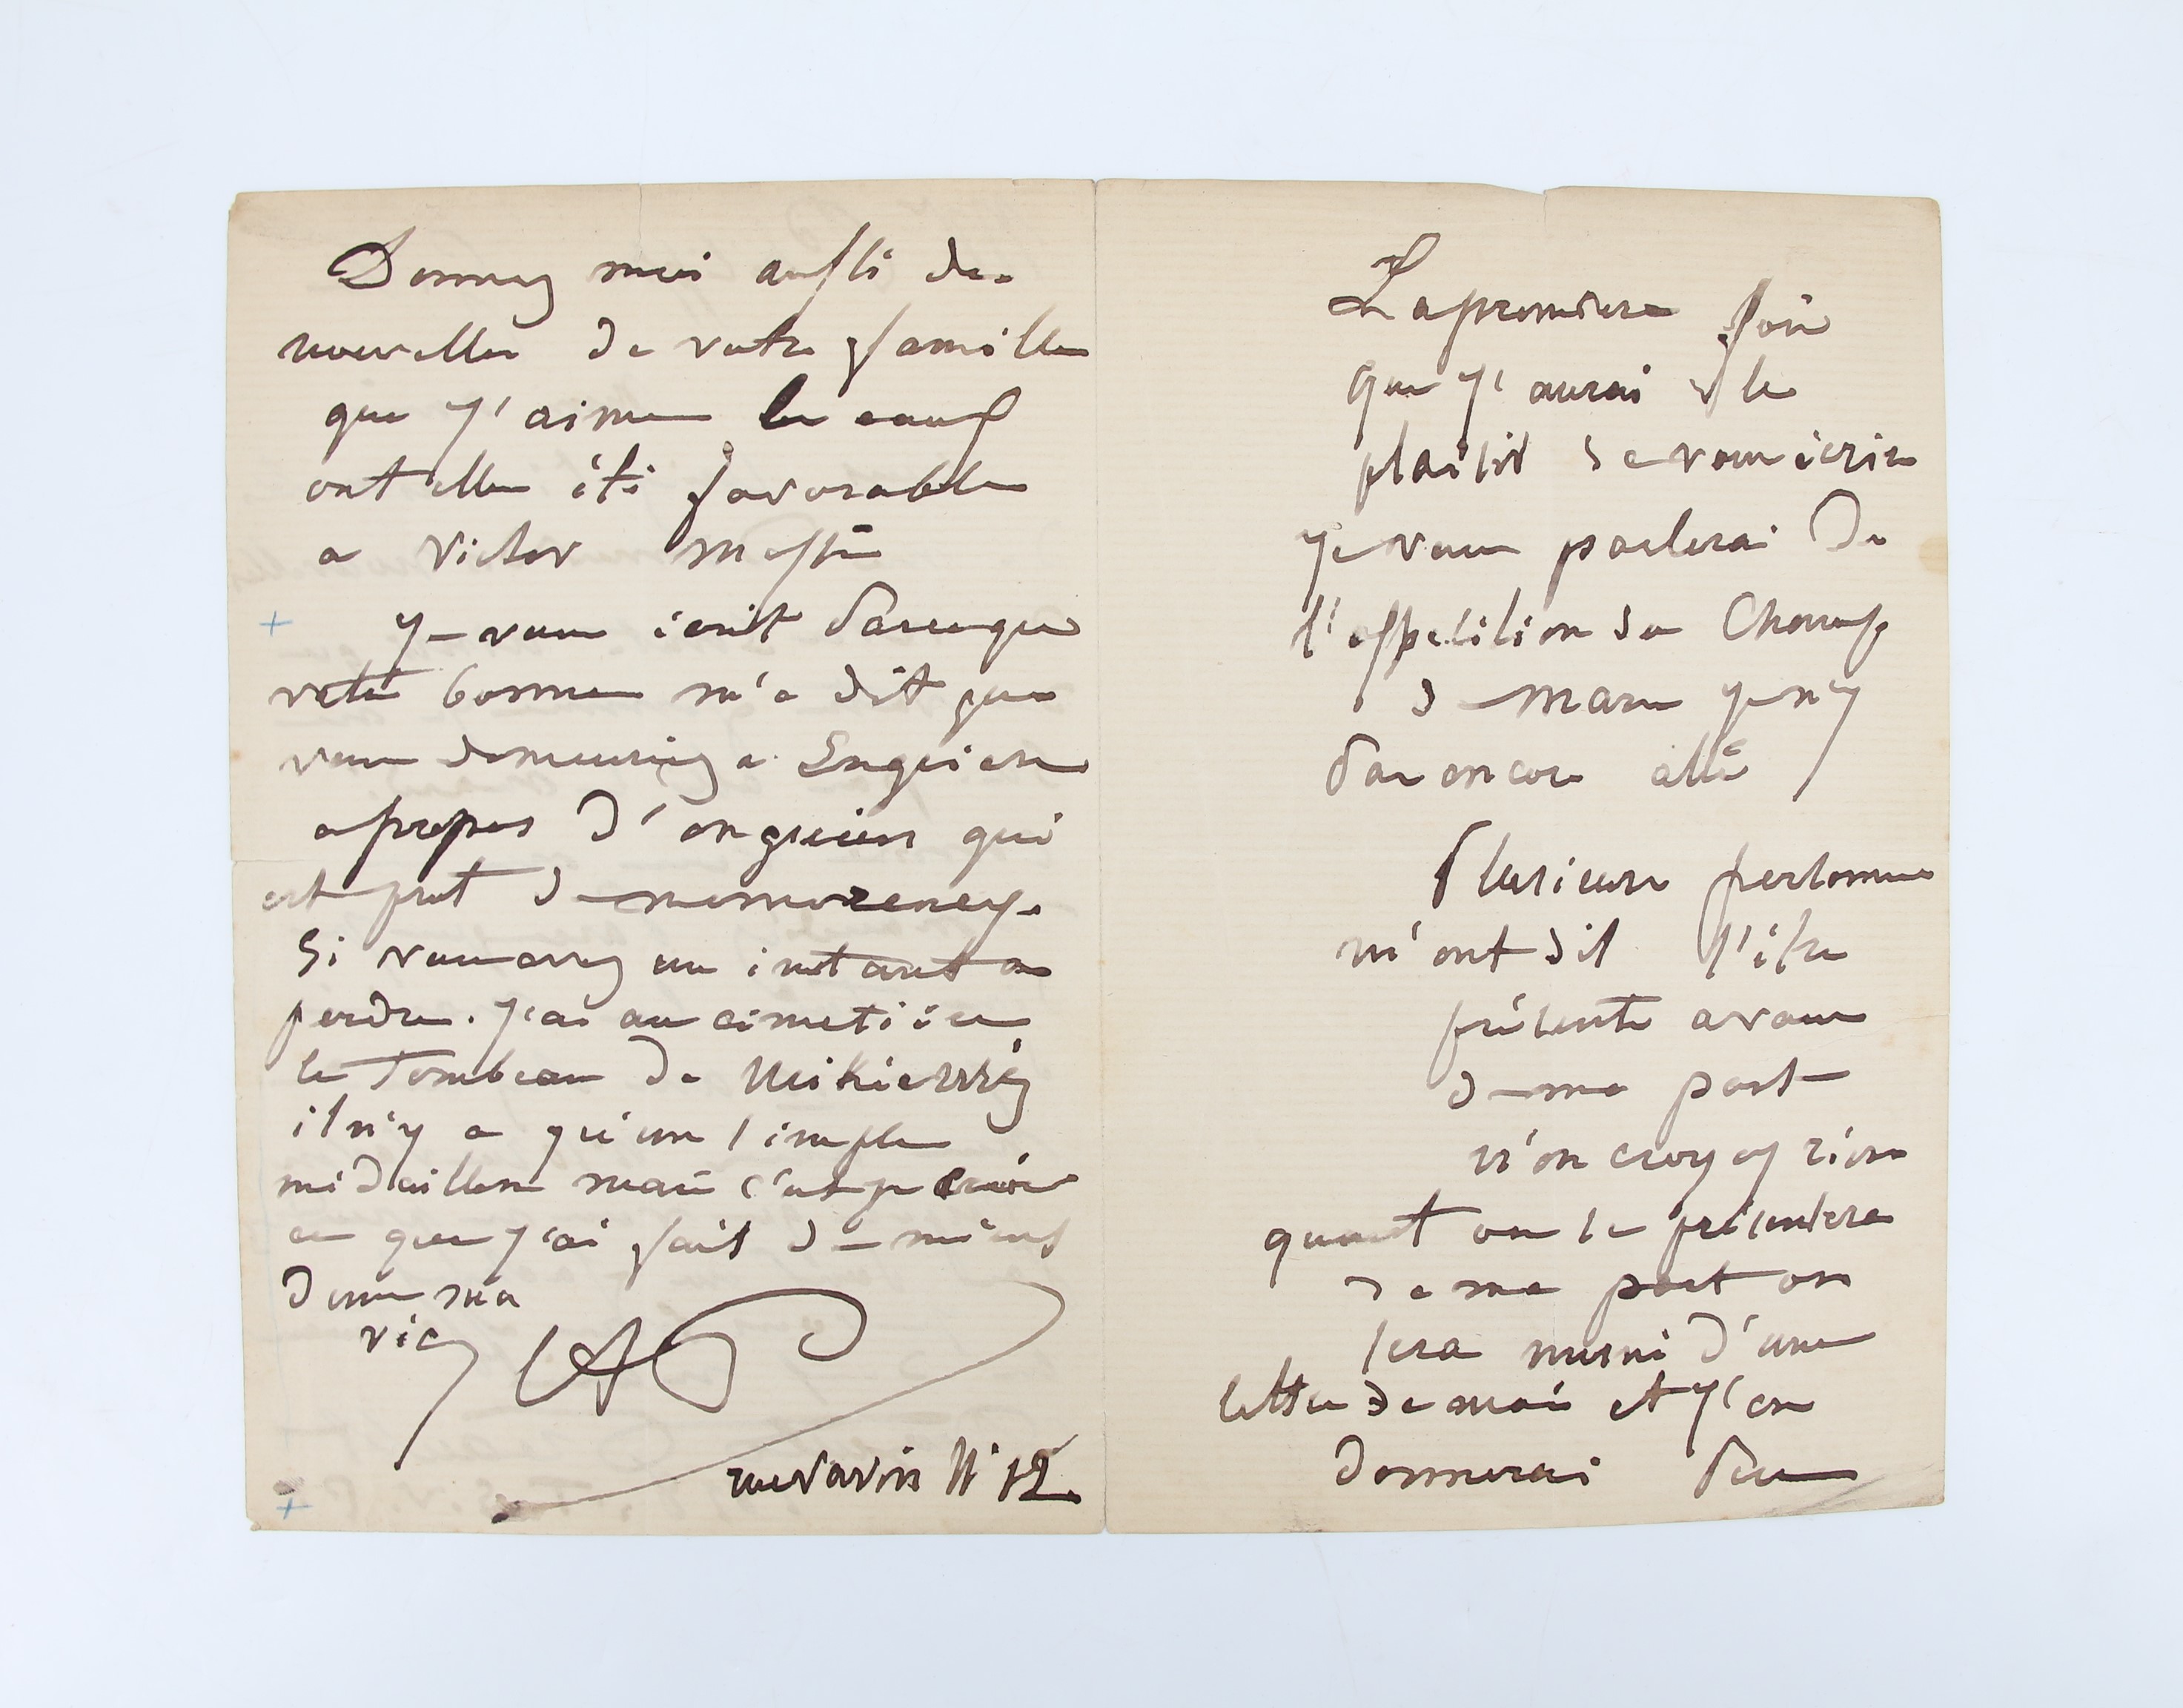 Donnez moi aussi des
nouvelles de votre famille
que j'aime les eaux
ont elles été favorables
a Victor Massé
je vous écrit parceque
votre bonne m'a dit que
vous demeuriez a Enguien
apropos d'enguien qui
est pret de memorency.
Si vous avez un instant a
perdre. j'ai au cimetière
le Tombeau de Mikiewig
il n'y a qu'un simple
médaillon mais c'est je crois
ce que j'ai fait de mieux
dans ma
vie
rue vavin N° 12.
La première fois
que j'aurai le
plaisir de vous écrire
je vous parlerai de
l'exposition du Champ
de Mars je n'y
pas encore allé
Plusieurs personnes
m'ont dit s'être
présenté a vous
de ma part
n'en croyez rien
quant on se présentera
de ma part on
sera muni d'une
lettre de moi et j'en
donnerai peu